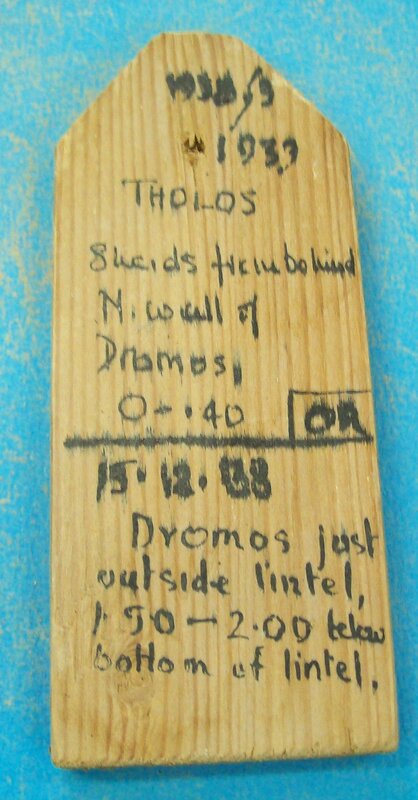 1938/9
1939
THOLOS
Sherds from behind
N. wall of
Dromos,
0-.40 OR
15.12.38
Dromos just
outside lintel,
1.50-2.00 below
bottom of lintel.